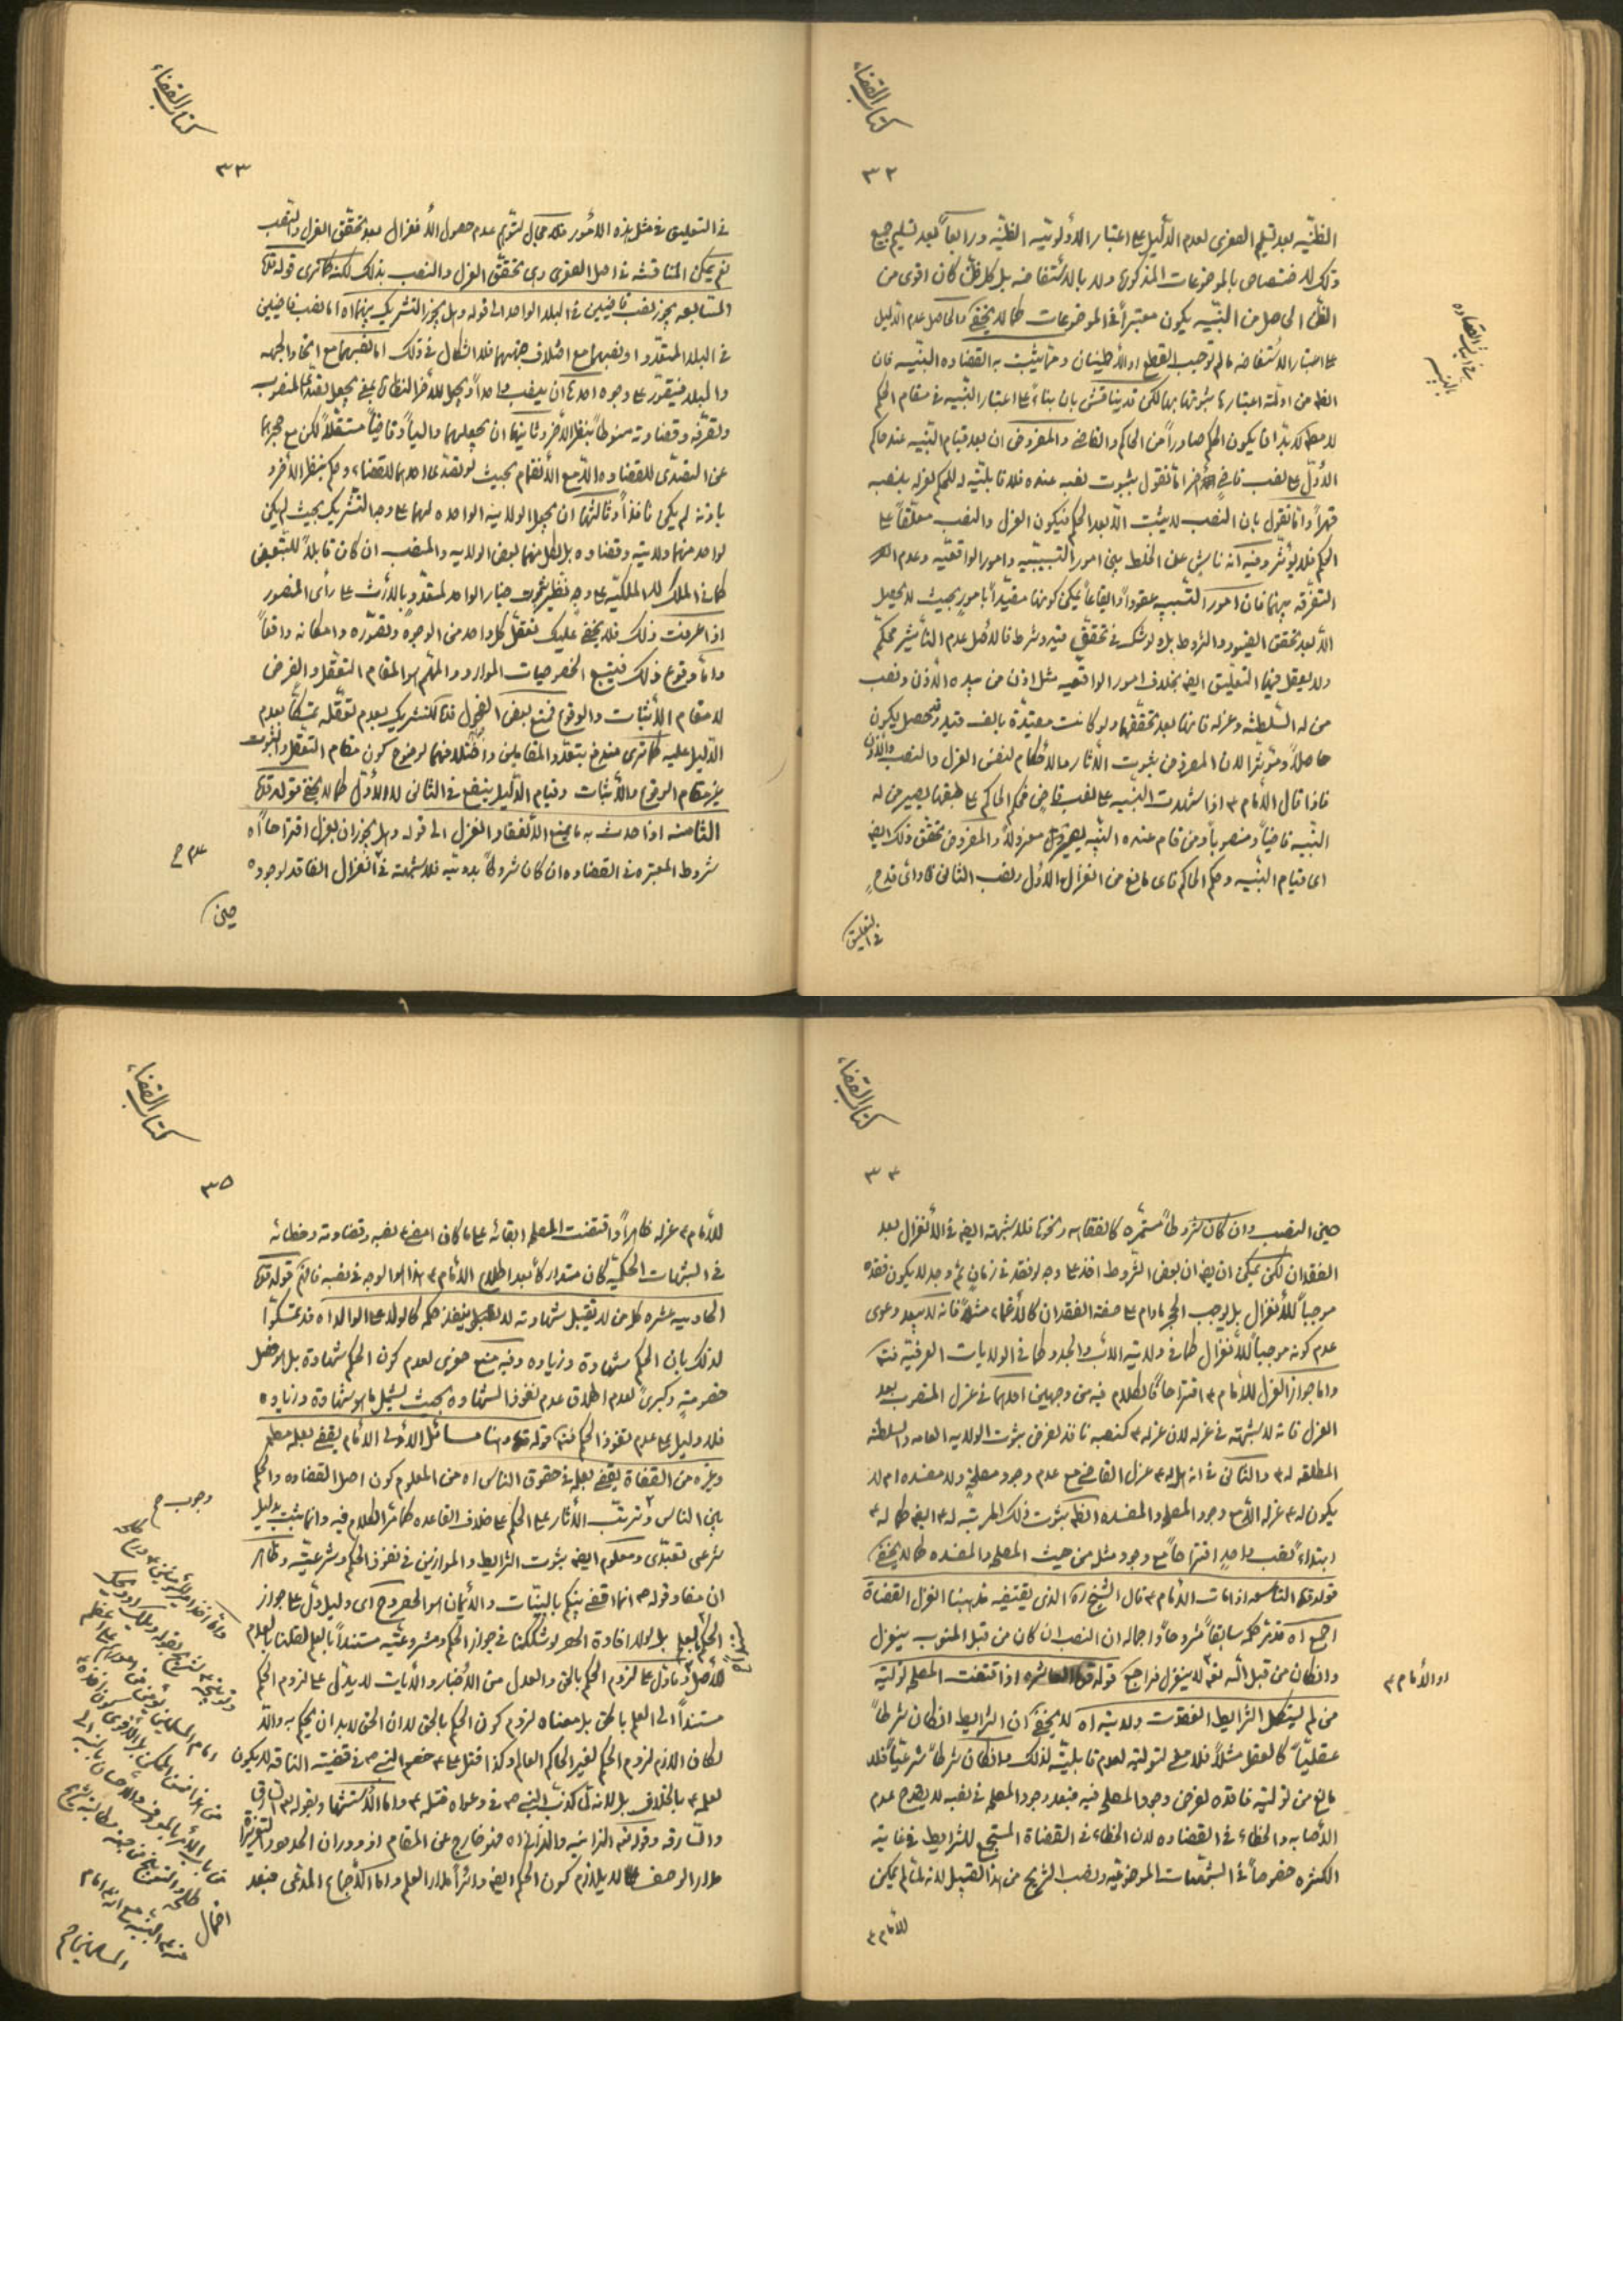 كتاب القضاء
٣٢
الظنّيه بعد تسليم الصغرى لعدم الدّليل على اعتبار الأولويّه الظنّيه ورابعاً بعد تسليم جميع
ذلك لا اختصاص بالموضوعات المذكوره ولا بالاستفاضه بل كل ظنّ كان اقوى من
الظنّ الحاصل من البيّنه يكون معتبراً فى الموضوعات كما لا يخفى والحاصل عدم الدّليل
على اعتبار الاستفاضه ما لم توجب القطع او الاطمينان وممّا يثبت به القضاوه البيّنه فان
الظ من ادلّة اعتبارها ثبوتها بها لكن قد يناقش بان بناء على اعتبار البيّنه فى مقام الحكم
لا مط لا بدّ ان يكون الحكم صادراً من الحاكم والقاضى والمفروض ان بعد قيام البيّنه عند حاكم
الأوّل على نصب قاضى آخر امّا نقول بثبوت نصبه عنده فلا قابليّه له للحكم لعزله بنصبه
قهراً وامّا نقول بان النصب لا يثبت الّا بعد الحكم فيكون العزل والنصب معلّقاً على
الحكم فلا يؤثّر وفيه انّه ناشٍ عن الخلط بين امور التسبيبيه وامور الواقعيّه وعدم
التفرقه بينهما فان امور التسبيبيه عقوداً وايقاعاً يمكن كونها مقيّداً بامور بحيث لا يحصل
الّا بعد تحقق القيود والشروط بل لو شك فى تحقّق قيد وشرط فالأصل عدم التأثير محكّم
ولا يعقل فيها التعليق ايض بخلاف امور الواقعيه مثل اذن من بيده الأذن ونصب
من له السّلطنه وعزله فانها بعد تحققها ولو كانت مقيّدة بالف قيد فيحصل يكون
حاصلاً ومؤثّراً لان المفروض ثبوت الآثار والأحكام لنفس العزل والنصب والأذن
فاذا قال الأمام ع اذا شهدت البيّنه على نصب قاضٍ فحكم الحاكم على طبقها يصير من له
البيّنه قاضياً ومنصوباً ومن قام عنده البيّنه معزولاً والمفروض تحقّق ذلك ايض
اى قيام البيّنه وحكم الحاكم فاى مانع من انعزال الأوّل ونصب الثانى واىّ قدحٍ
فى التعليق
فى اثبات القضاوه
بالبيّنه
كتاب القضاء
٣٣
فى التعليق فى مثل هذه الأمور فلا مجال لتوهّم عدم حصول الأنعزال بعد تحقّق العزل والنصب
نعم يمكن المناقشه فى اصل الصغرى وهى تحقّق العزل والنصب بذلك لكنّه كما ترى قوله قدّه
السّابعه يجوز نصب قاضيين فى البلد الواحد الى قوله وهل يجوز التشريك بينهما اه اما نصب قاضيين
فى البلد المتعدّد او نصبهما مع اختلاف جهتهما فلا اشكال فى ذلك اما نصبهما مع اتحاد الجهه
والبلد فيتصوّر على وجوه احدها ان ينصب واحداً ويجعل للأخر النظاره بمعنى يجعل نفوذ المنصوب
وتصرّفه وقضاوته منوطاً بنظر الأخر وثانيها ان يجعلهما والياً وقاضياً مستقلاً لكن مع حجرهما
عن التصدّى للقضاوه الّا مع الأنضمام بحيث لو تصدّى احدهما للقضاء وحكم بنظر الأخر و
باذنه لم يكن نافذاً وثالثها ان يجعل الولايه الواحده لهما على وجه التشريك بحيث لم يكن
لواحد منهما ولايته وقضاوه بل لكل منهما بعض الولايه والمنصب ان كان قابلاً للتبعيض
كما فى الملك والملكيّه على وجه نظير ثبوت خيار الواحد لمتعدّدٍ بالأرث على رأى المنصور
اذا عرفت ذلك فلا يخفى عليك تعقّل كل واحد من الوجوه وتصوّره وامكانه واقعاً
وامّا وقوع ذلك فيتبع الخصوصيات الموارد والمهمّ هو المقام التعقّل والفرض
لا مقام الأثبات والوقوع فمنع بعض الفحول قدّه التشريك بعدم تعقّله تمسّكاً بعدم
الدّليل عليه كما ترى مندفع بتعدّد المقامين واختلافهما لوضوح كون مقام التعقّل والثبوت
غير مقام الوقوع والأثبات وقيام الدّليل ينفع فى الثانى لا الأوّل كما لا يخفى قوله قدّه
الثامنه اذا حدث به ما يمنع الأنعقاد انعزل الى قوله وهل يجوز ان يعزل اقتراحاً اه
شروط المعتبره فى القضاوه ان كان شروطاً بدويّه فلا شبهة فى انعزال الفاقد لوجوده
حين
كتاب القضاء
٣٤
حين النصب وان كان شروطاً مستمرّه كالفقاهه ونحوها فلا شبهة ايض فى الأنعزال بعد
الفقدان لكن يمكن ان يق ان بعض الشروط اخذ على وجه لو فقد فى زمانٍ ثم وجد لا يكون فقده
موجباً للأنعزال بل يوجب الحجر مادام على صفة الفقدان كالأغماء مثلاً فانه لا يبعد دعوى
عدم كونه موجباً للأنعزال كما فى ولايته الأب والجد وكما فى الولايات العرفيّه فتدبّر
واما جواز العزل للأمام ع اقتراحاً فالكلام فيه من وجهين احدهما فى عزل المنصوب بعد
العزل فانه لا شبهة فى عزله لان عزله ع كنصبه نافذ لفرض ثبوت الولايه العامه والسلطنه
المطلقه له ع والثانى فى انه هل له ع عزل القاضى مع عدم وجود مصلحةٍ ولا مفسده ام لا
يكون له ع عزله الّا مع وجود المصلحه والمفسده الظ ثبوت ذلك المرتبه له ع ايض كما له ع
ابتداءً نصب واحدٍ اقتراحاً مع وجود مثل من حيث المصلحه والمفسده كما لا يخفى
قوله قدّه التاسعه اذا مات الأمام ع قال الشيخ ره الذى يقتضيه مذهبنا انعزل القضاة
اجمع اه قد مرّ حكمه سابقاً مشروحاً واجماله ان النصب ان كان من قبل المنوب ينعزل
وان كان من قبل الله تعالى لا ينعزل فراجع قوله قدّه العاشره اذا اقتضت المصلحه تولية
او الأمام ع
من لم يستكمل الشرايط انعقدت ولايته اه لا يخفى ان الشرايط ان كان شرطاً
عقليّاً كالعقل مثلاً فلا معنى لتوليته لعدم قابليّته لذلك وان كان شرطاً شرعيّاً فلا
مانع من توليته فاقده لفرض وجود المصلحه فيه فبعد وجود المصلحه فى نصبه لا يقدح عدم
الأصابه والخطاء فى القضاوه لان الخطاء فى القضاة المستجمع للشرايط فى غاية
الكثره خصوصاً فى الشبهات الموضوعيّه ونصب الشريح من هذا القبيل لانه لمّا لم يمكن
للأمام ع
كتاب القضاء
٣٥
للأمام ع عزله ظاهراً واقتضت المصلحه ابقائه على ما كان امضى ع نصبه وقضاوته وخطائه
فى الشبهات الحكميّه كان متداركاً بعد اطلاع الأمام ع هذا هو الوجه فى نصبه فافهم قوله قدّه
الحاديه عشره كل من لا تقبل شهادته لا ينفذ حكمه كالولد على الوالد اه قد تمسّكوا
لذلك بان الحكم شهادة وزياده وفيه منع صغرى لعدم كون الحكم شهادة بل هو فصل
خصومةٍ وكبرىً لعدم اطلاق عدم نفوذ الشهاده بحيث يشمل ما هو شهادة وزياده
فلا دليل على عدم نفوذ الحكم فتدبّر قوله قدّه وهنا مسائل الأولى الأمام يقضى بعلمه مط
وغيره من القضاة يقضى بعلمه فى حقوق الناس اه من المعلوم كون اصل القضاوه والحكم
بين الناس وترتّب الآثار على الحكم على خلاف القاعده كما مرّ الكلام فيه وانما يثبت بدليل
شرعى تعبّدى ومعلوم ايض ثبوت الشرايط والموازين فى نفوذ الحكم وشرعيّته وظاهر
ان مفاد قوله ص انما اقضى بينكم بالبيّنات والأيمان هو الحصر وح اى دليل دلّ على جواز
الحكم بالعلم بل لولا افادة الحصر لو شككنا فى جواز الحكم ومشروعيّته مستنداً بالعلم لقلنا بالعدم
للأصل وما دلّ على لزوم الحكم بالحق والعدل من الأخبار والآيات لا يدلّ على لزوم الحكم
مستنداً الى العلم بالحق بل معناه لزوم كون الحكم بالحق لان الحق لا بد ان يحكم به والّا
لكان اللازم لزوم الحكم لغير الحاكم العالم وكذا قتل على ع خصم النبى ص فى قضيّة الناقه لا يكون
لعلمه ع بالخلاف بل لانه كذّب النبى ص فى دعواه فقتله ع واما الأستشهاد بقوله تع السّارق
والسّارقه وقوله تع الزانيه والزانى اه فهو خارج عن المقام اذ دوران الحدود والتعزير
مدار الوصف لا يلازم كون الحكم ايض دائراً مدار العلم واما الأجماع المدّعى فبعد
وجوب ح
احتمال